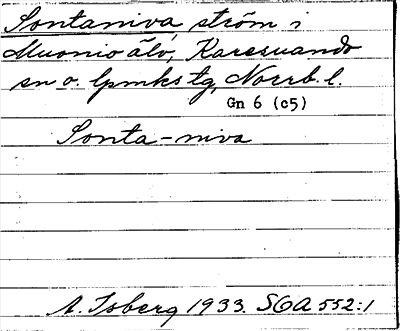 Sontaniva ström i
Muonio älv, Karesuando
sn o. lpmkstg, Norrb. l.
Gn 6 (c5)
Sonta-niva
A. Isberg 1933. SOA 552:1